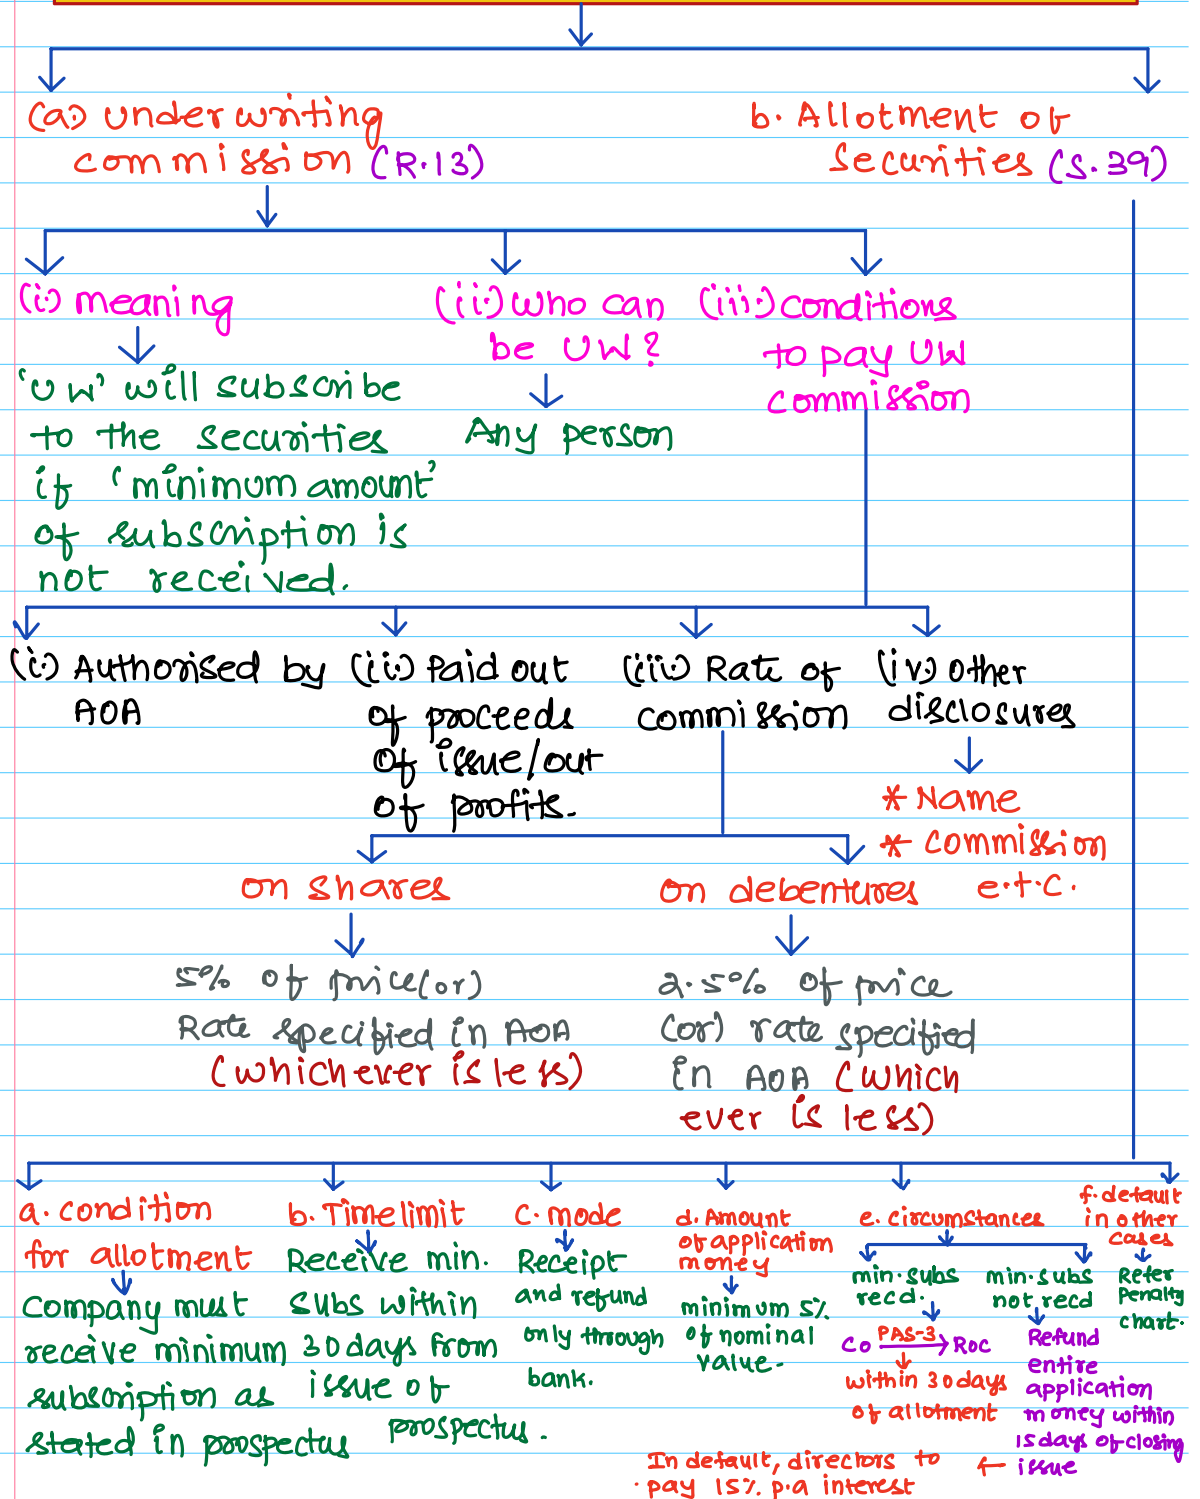 (a.) Underwriting
commission (R.13)
b. Allotment of
Securities (S.39)
(i.) meaning
'UW' will subscribe
to the securities
if 'minimum amount'
of subscription is
not received.
(ii.) Who can
be UW?
Any person
(iii.) Conditions
to pay UW
commission
(i.) Authorised by
AOA
(ii.) Paid out
of proceeds
of issue/out
of profits.
(iii) Rate of
commission
(iv.) Other
disclosures
* Name
* Commission
e.t.c.
on shares
5% of price(or)
Rate specified in AOA
(whichever is less)
on debentures
2.5% of price
(or) rate specified
in AOA (which
ever is less)
a. condition
for allotment
Company must
receive minimum
subscription as
stated in prospectus
b. Timelimit
Receive min.
subs within
30 days from
issue of
prospectus.
c. mode
Receipt
and refund
only through
bank.
d. Amount
of application
money
minimum 5%
of nominal
value.
e. circumstances
min. subs
recd.
Co PAS-3 ROC
within 30 days
of allotment
min. subs
not recd
Refund
entire
application
money within
15 days of closing
issue
In default, directors to
pay 15% p.a interest
f. default
in other
cases
Refer
Penalty
chart.